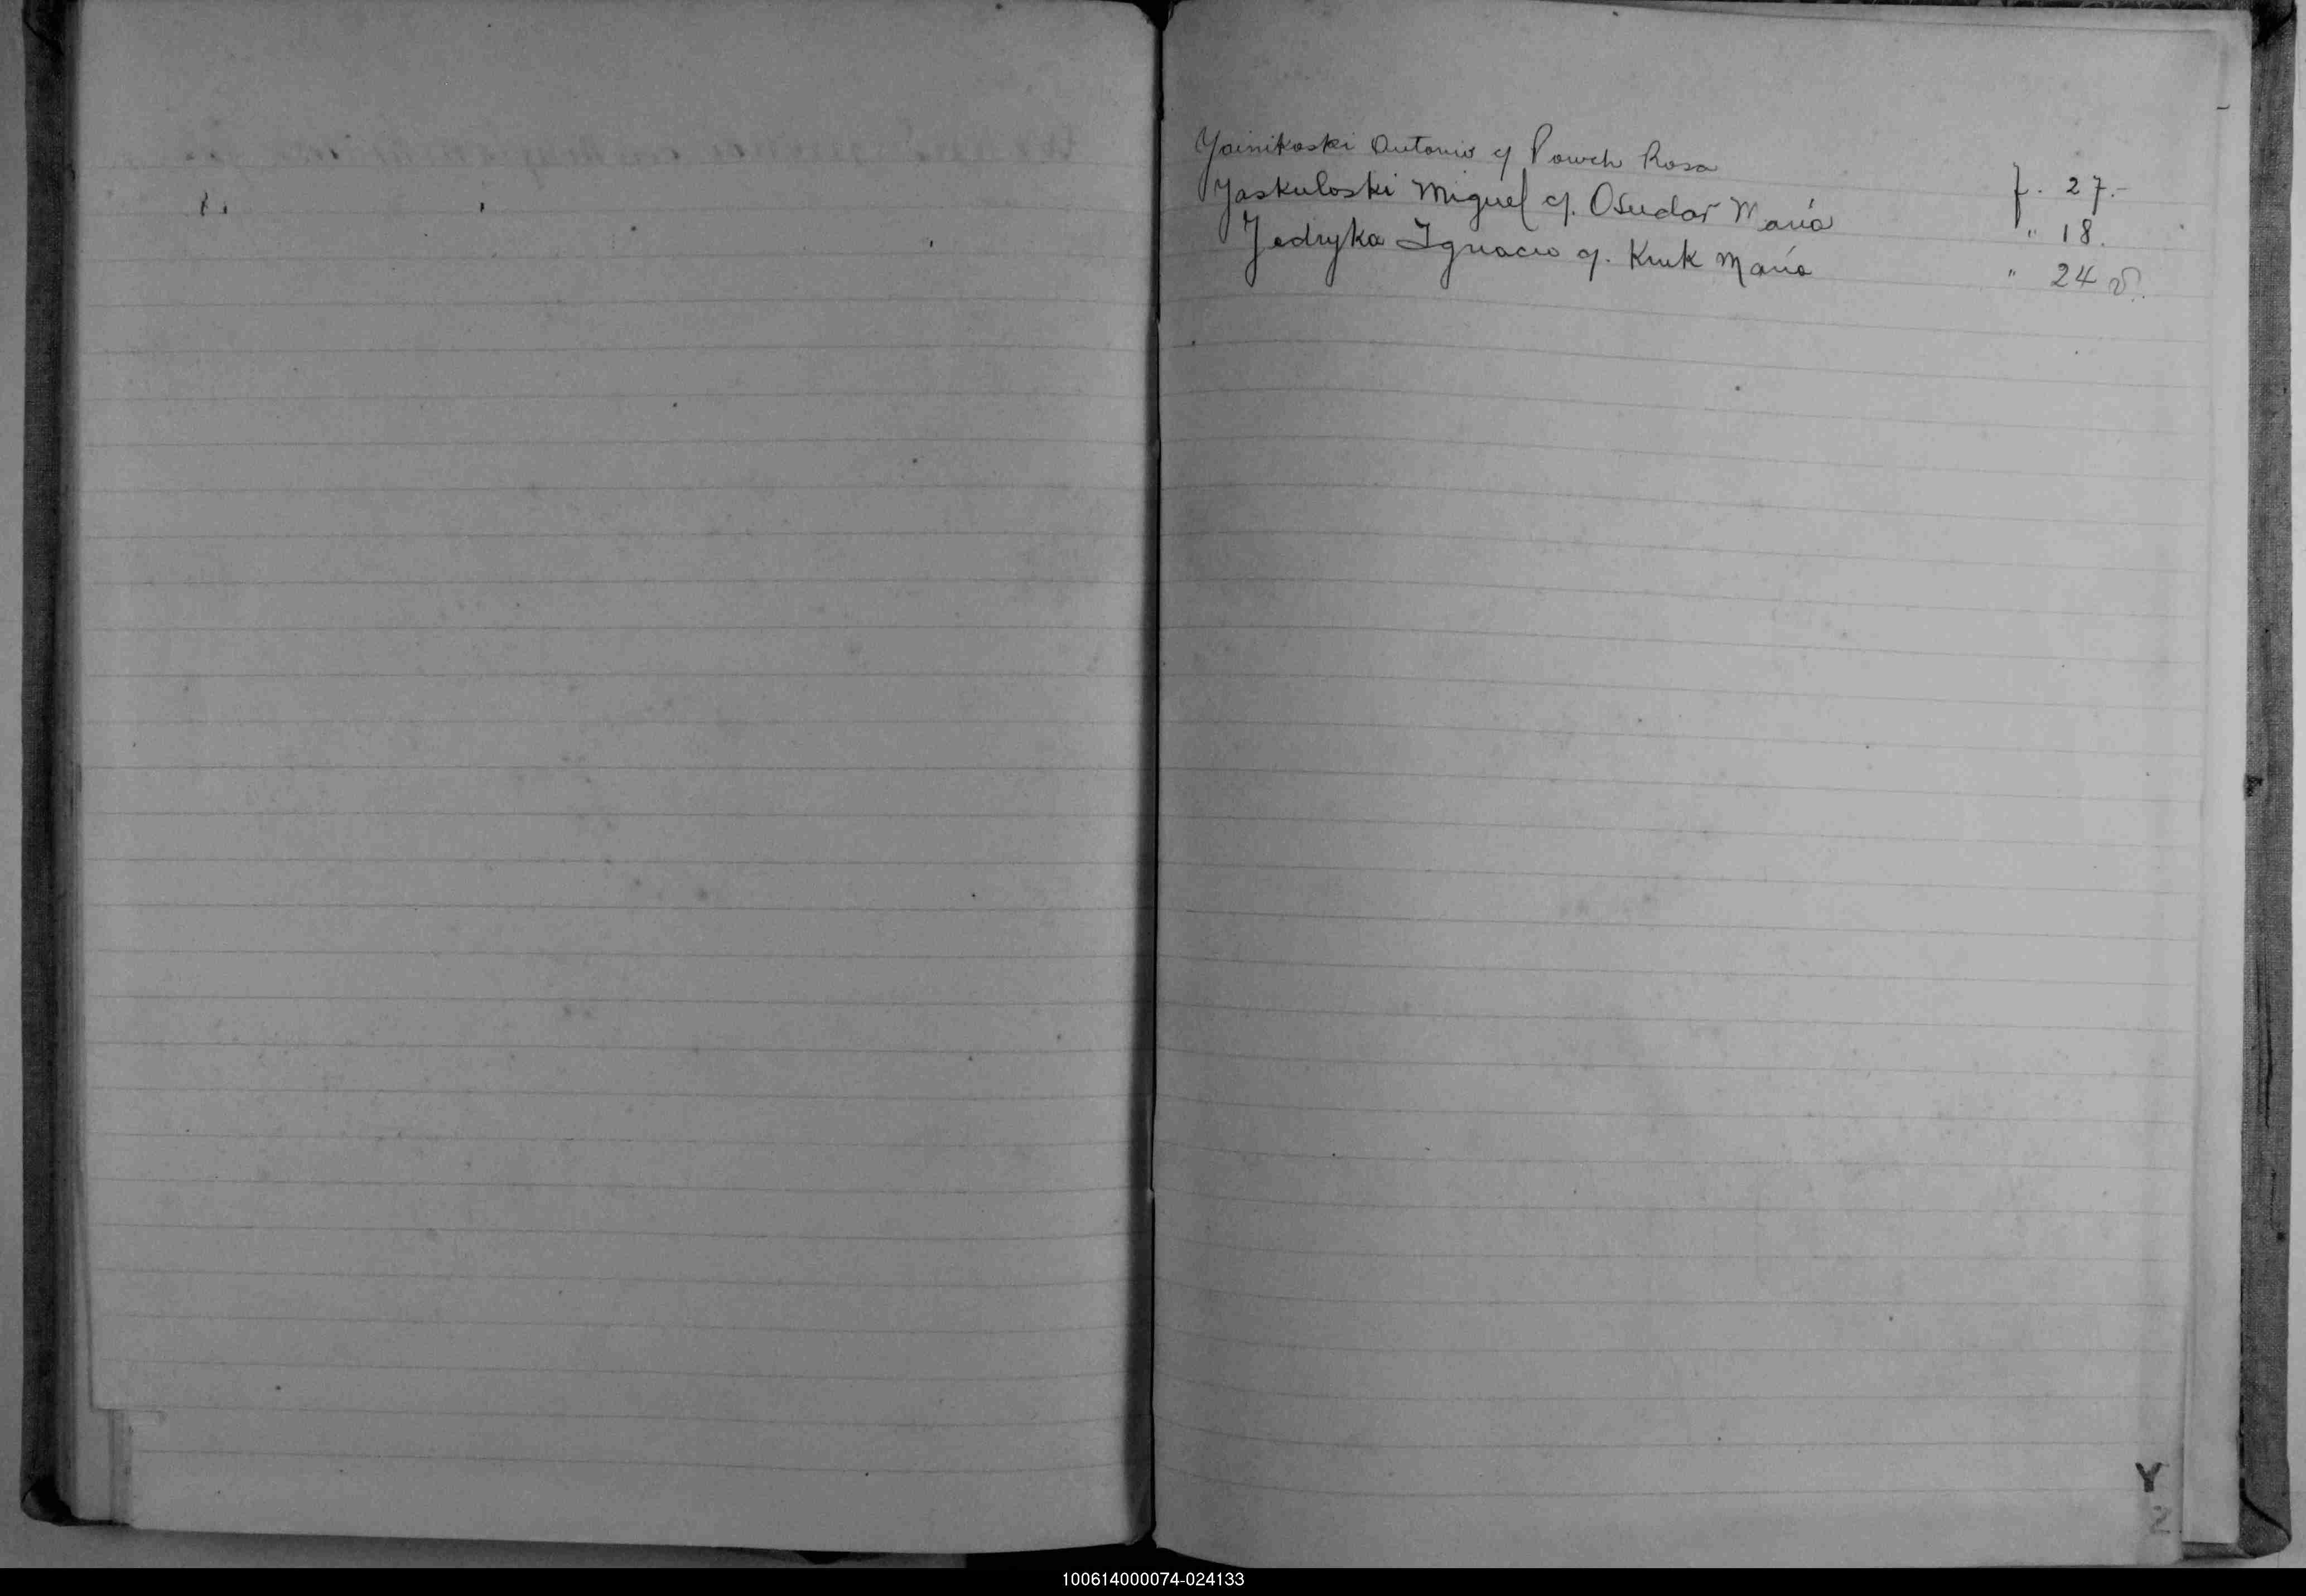 Yainikoski Antonio c/ Powch Rosa f. 27.-
Yaskuloski Miguel c/. Osudar María " 18.
Jedryka Ignacio c/. Kruk María " 24 v.
Y
Z
100614000074-024133